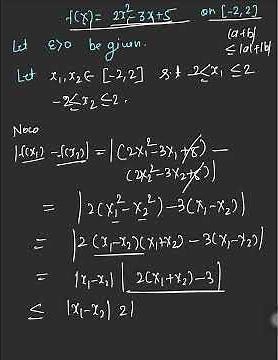 f(x) = 2x²-3x+5 on [-2,2]
Let ε>0 be given.
|a+b| ≤ |a|+|b|
Let x₁,x₂ ∈ [-2,2] s.t -2≤x₁≤2
-2≤x₂≤2.
Now
|f(x₁)-f(x₂)| = |(2x₁²-3x₁+5) -
(2x₂²-3x₂+5)|
= |2(x₁²-x₂²)-3(x₁-x₂)|
= |2(x₁-x₂)(x₁+x₂)-3(x₁-x₂)|
= |x₁-x₂| |2(x₁+x₂)-3|
≤ |x₁-x₂| 2|